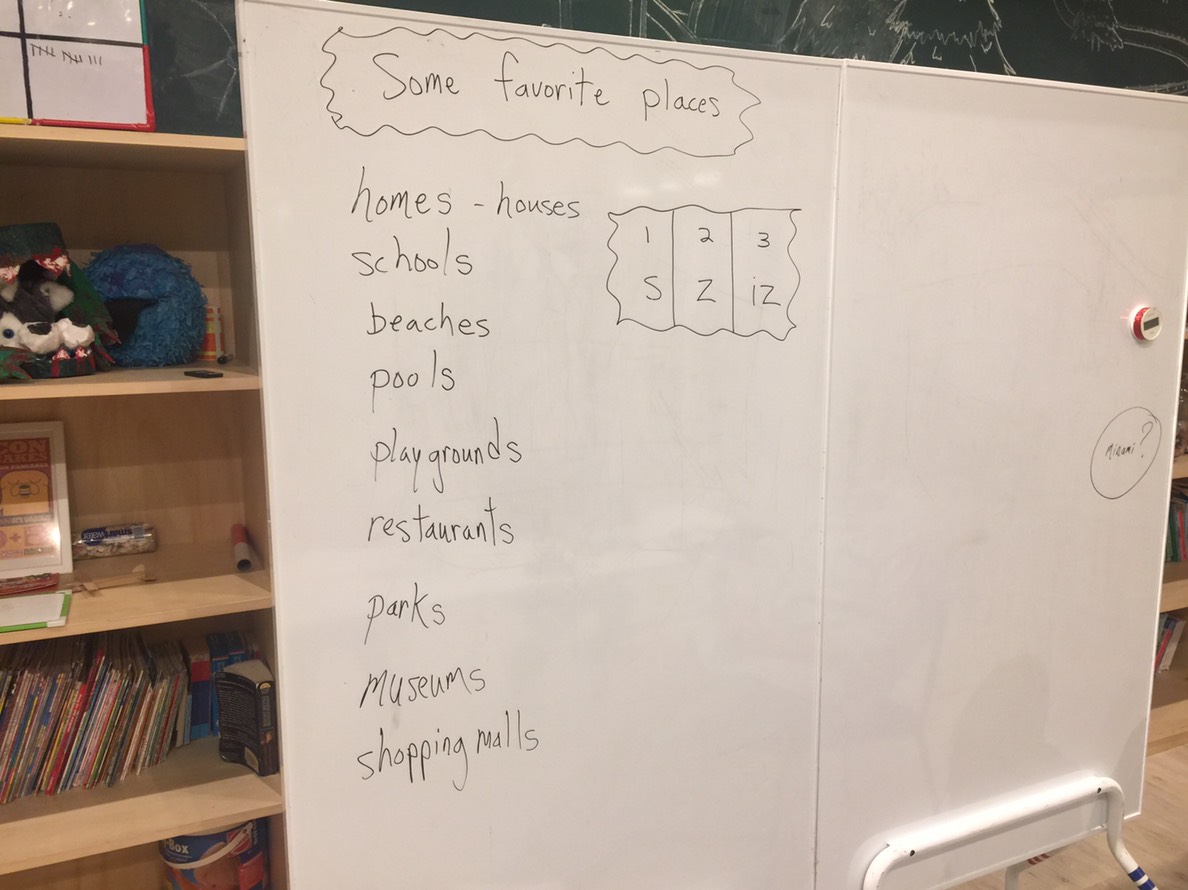 Some favorite places
homes - houses
schools
beaches
pools
playgrounds
restaurants
parks
museums
shopping malls
1 2 3
S Z iZ